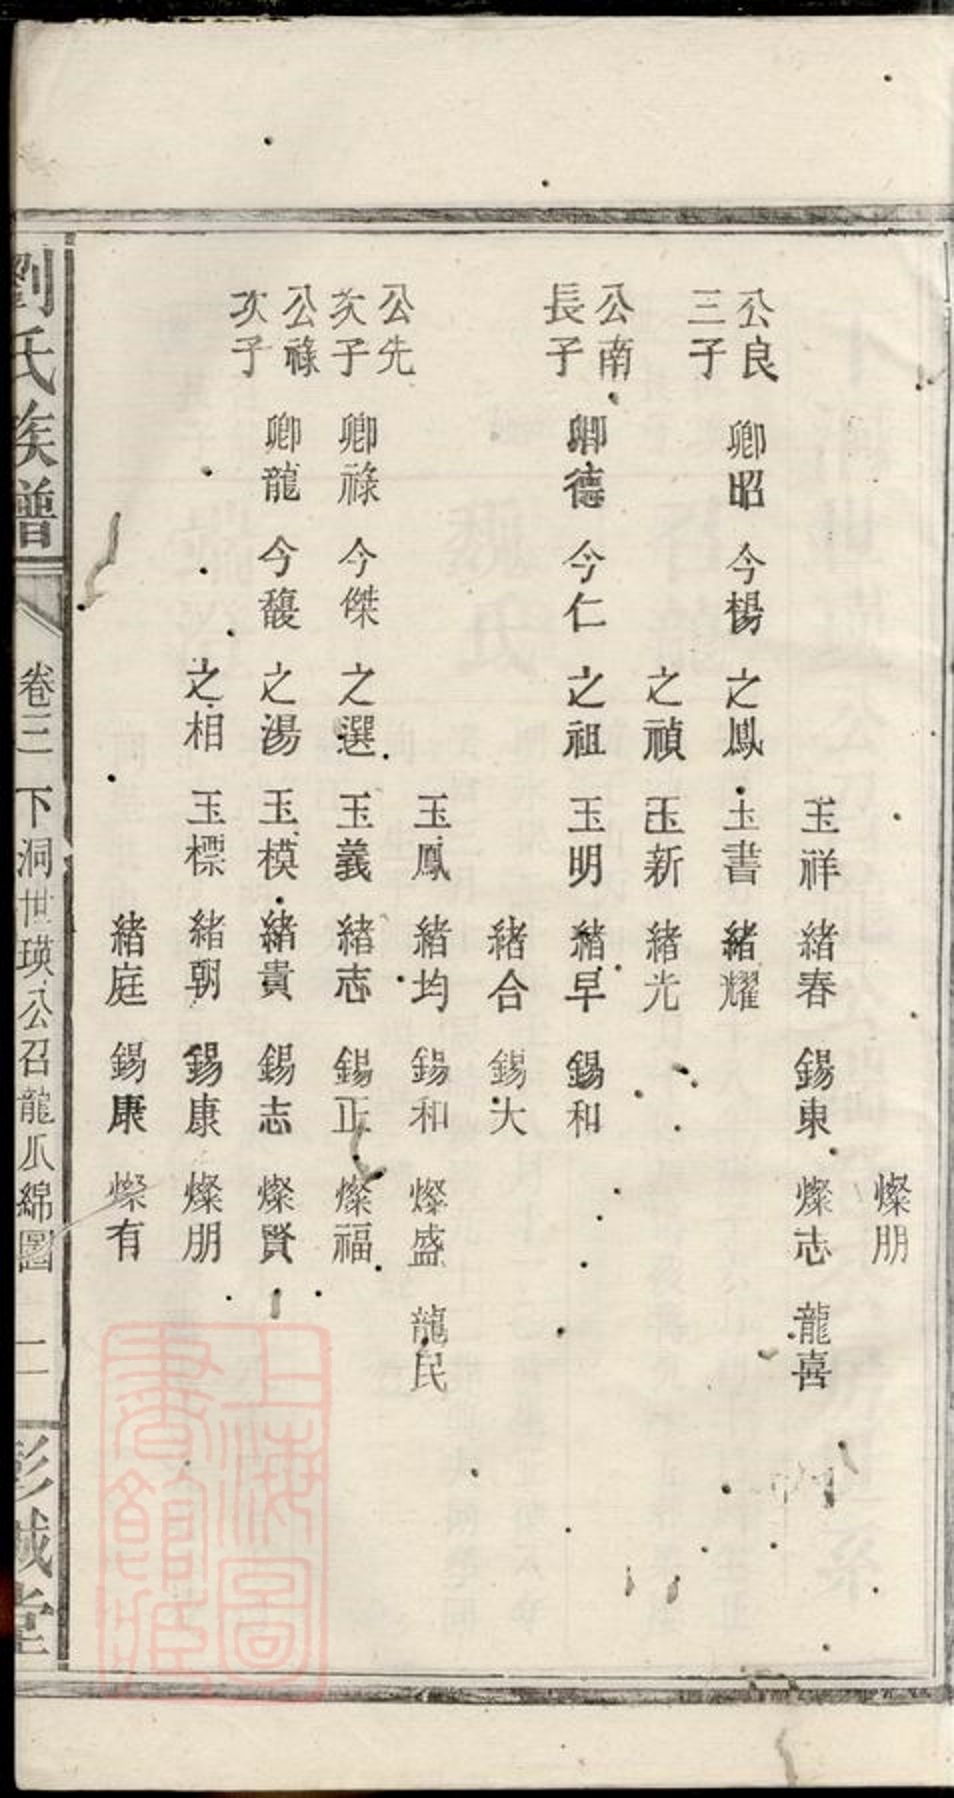 燦朋
玉祥 緒春 錫東 燦志 龍喜
公良
三子
卿昭 今楊 之鳳 玉書 緒耀
之禎 玉新 緒光
公南
長子
卿德 今仁 之祖 玉明 緒早 錫和
緒合 錫大
玉鳳 緒均 錫和 燦盛 龍民
公先
次子
卿祿 今傑 之選 玉義 緒志 錫正 燦福
公祿
次子
卿龍 今馥 之湯 玉模 緒貴 錫志 燦賢
之相 玉標 緒朝 錫康 燦朋
緒庭 錫康 燦有
劉氏族譜 卷三 下洞世瑛公召龍瓜綿圖 二 彭城堂
上海圖
書館藏